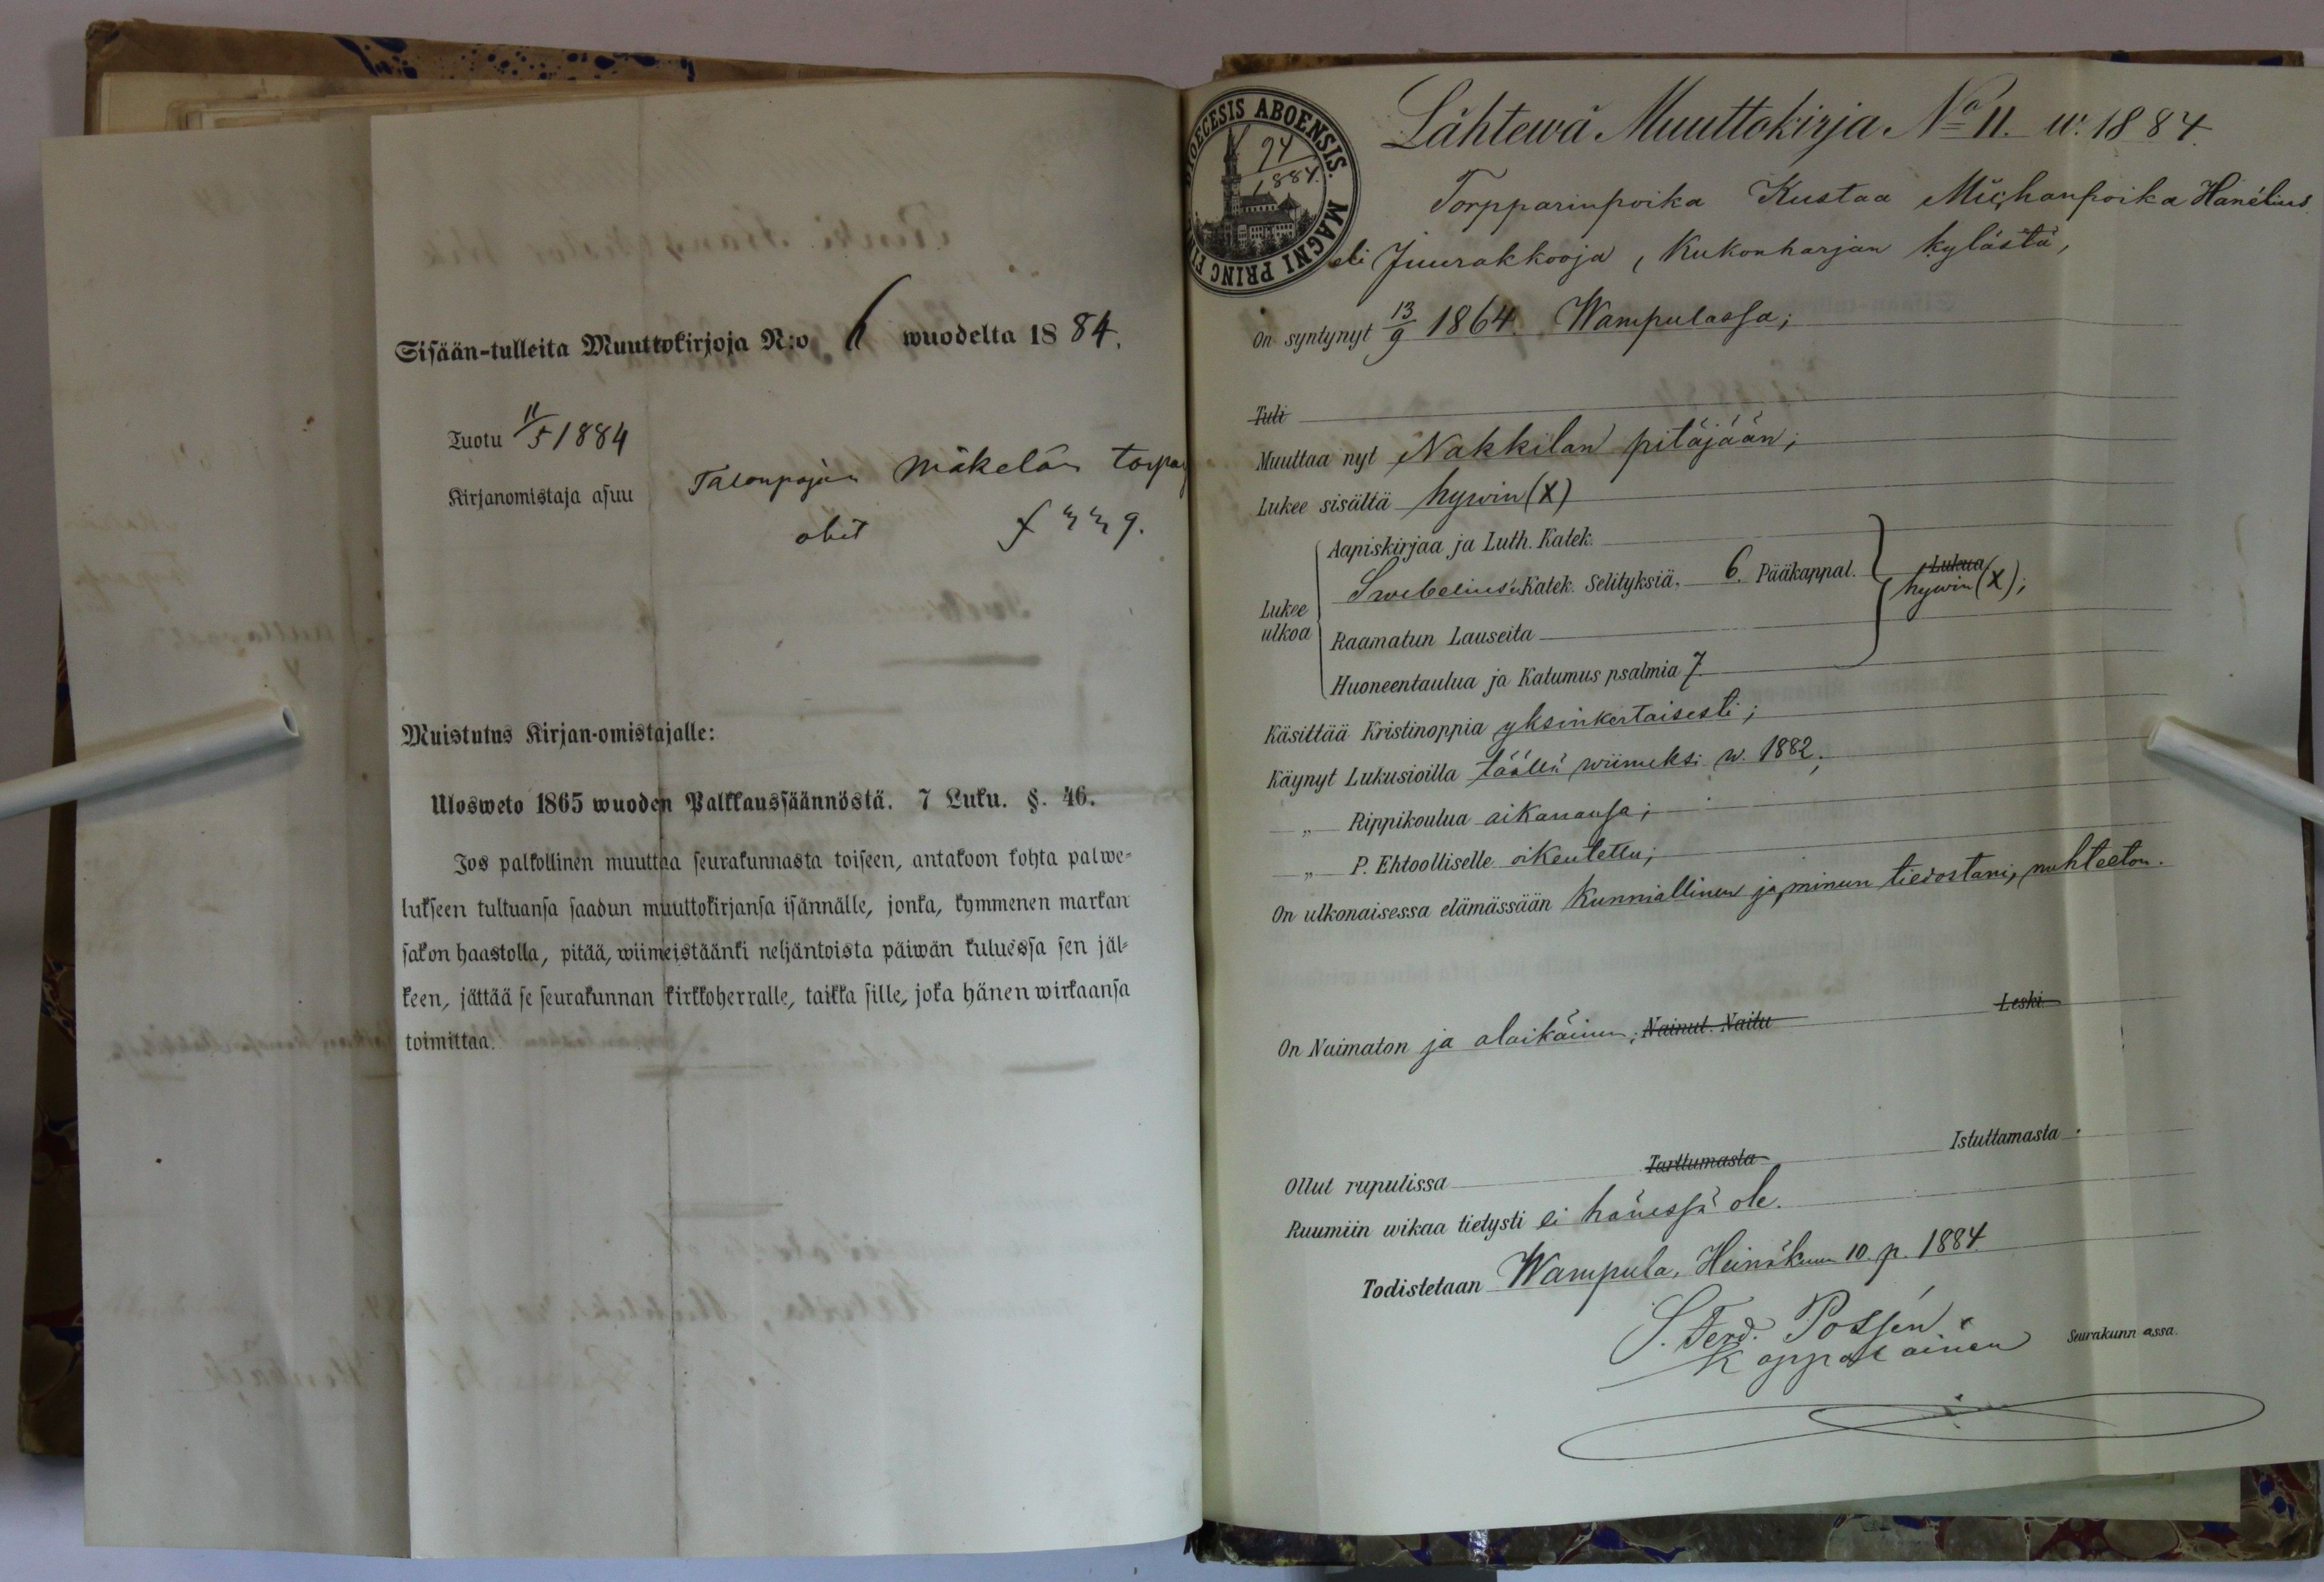 Sisään-tulleita Muuttokirjoja N:o 6 wuodelta 1884.
Tuotu 11/5 1884
Kirjanomistaja asuu Talonpojan Mäkelän torpas
obit f 229.
Muistutus Kirjan-omistajalle:
Ulosweto 1865 wuoden Palkkaussäännöstä. 7 Luku. §. 46.
Jos palkollinen muuttaa seurakunnasta toiseen, antakoon kohta palwe-
lukseen tultuansa saadun muuttokirjansa isännälle, jonka, kymmenen markan
sakon haastolla, pitää, wiimeistäänki neljäntoista päiwän kuluessa sen jäl-
keen, jättää se seurakunnan kirkkoherralle, taikka sille, joka hänen wirkaansa
toimittaa.
DIOECESIS ABOENSIS. MAGNI PRINC FI
94
1884.
Lähtewä Muuttokirja No 11. w. 1884.
Torpparinpoika Kustaa Michanpoika Hanélius
eli Juurakkooja, Kukonharjan kylästä,
On syntynyt 13/9 1864. Wampulassa;
Tuli
Muuttaa nyt Nakkilan pitäjään;
Lukee sisältä hywin (X)
Lukee ulkoa
Aapiskirjaa ja Luth. Katek.
Swebeliusen Katek. Selityksiä, 6. Pääkappal.
Lukua
hywin (X);
Raamatun Lauseita
Huoneentaulua ja Katumus psalmia 7
Käsittää Kristinoppia yksinkertaisesti;
Käynyt Lukusioilla täällä wiimeksi w. 1882;
„ Rippikoulua aikanansa;
„ P. Ehtoolliselle oikeutettu;
On ulkonaisessa elämässään kunniallinen ja, minun tiedostani, nuhteeton.
On Naimaton ja alaikäinen; Nainut. Naitu Leski.
Ollut rupulissa Tarttumasta Istuttamasta.
Ruumiin wikaa tietysti ei hänessä ole.
Todistetaan Wampula, Heinäkuun 10. p. 1884.
S. Ferd. Possén
Kappalainen Seurakunnassa.